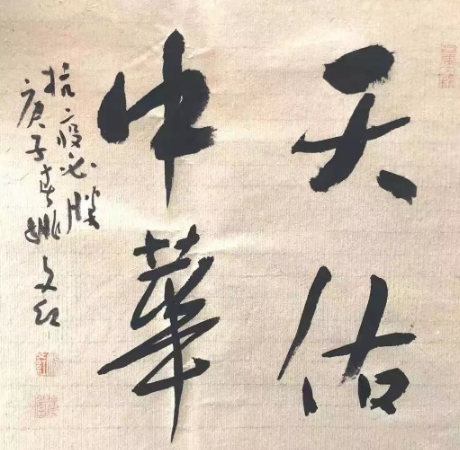 天佑
中華
抗疫必勝
庚子春姚文